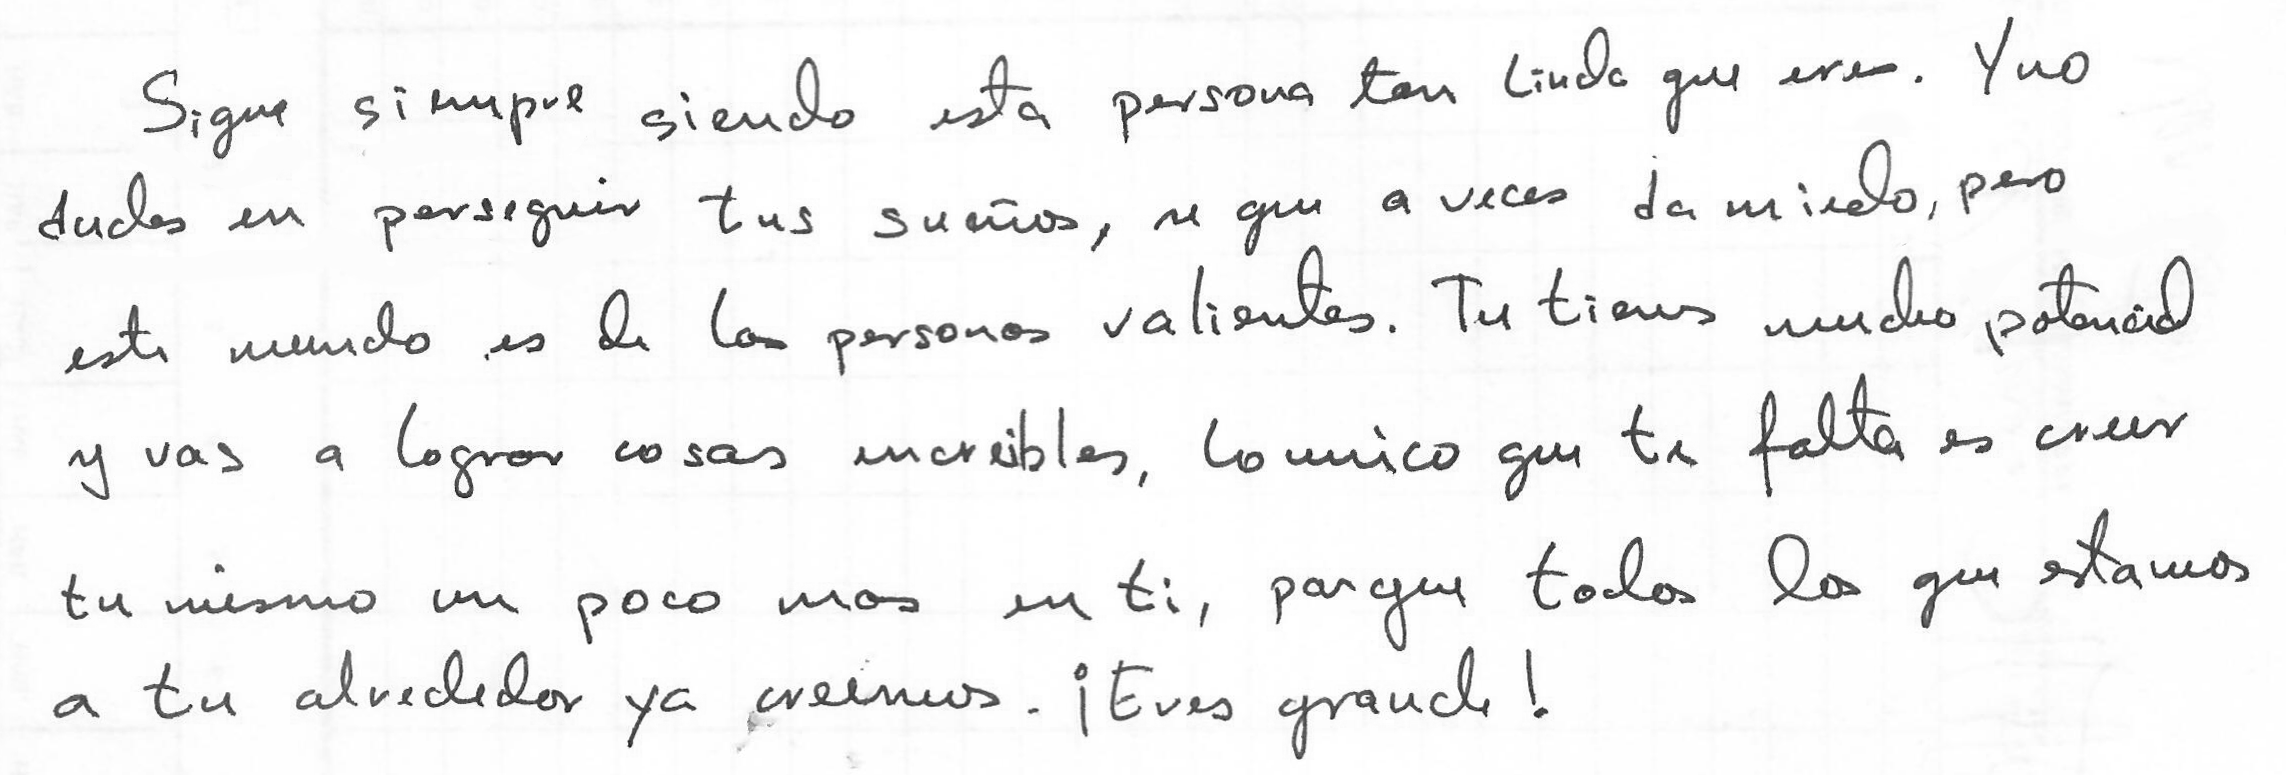 Sigue siempre siendo esta persona tan linda que eres. Y no
dudes en perseguir tus sueños, se que a veces da miedo, pero
este mundo es de las personas valientes. Tu tienes mucho potencial
y vas a lograr cosas increibles, lo unico que te falta es creer
tu mismo un poco mas en ti, porque todos los que estamos
a tu alrededor ya creimos. ¡Eres grande!